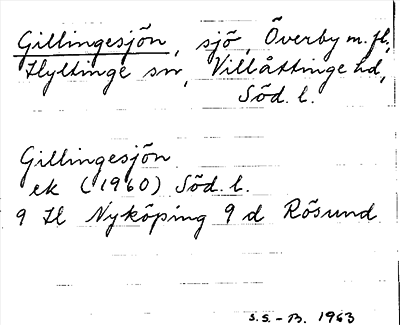 Gillingesjön, sjö, Överby m.fl.,
Hyltinge sn, Villåttinge hd,
Söd. l.
Gillingesjön
ek (1960) Söd. l.
9 H Nyköping 9 d Rösund
S.S.-B. 1963